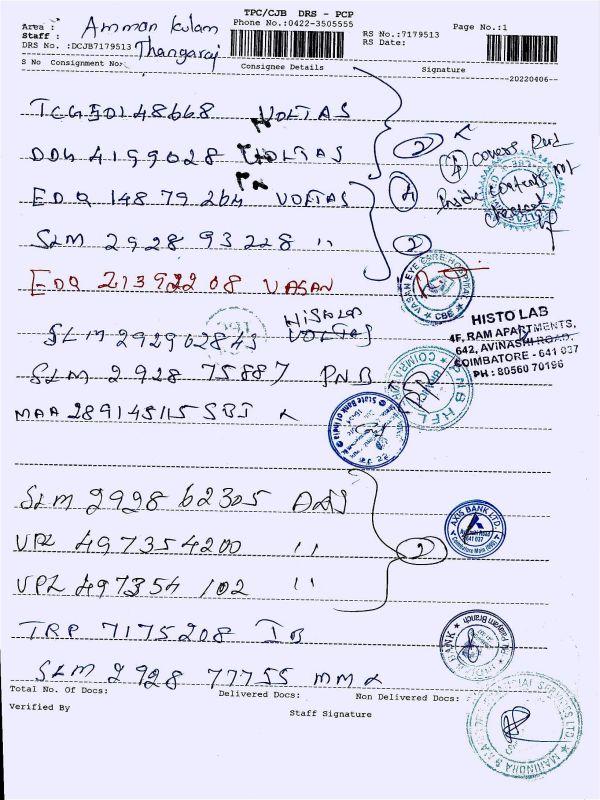 TPC/CJB DRS - PCP
Area : Amman Kulam
Phone No.:0422-3505555
Page No.:1
Staff : Thangaraj
RS No.:7179513
DRS No. :DCJB7179513
RS Date:
S No Consignment No: Consignee Details Signature
20220406
VOLTAS
DDG 4199028 VOLTAS
covers Recd
Inside contents not checked
EDQ 148 79 264 VOLTAS
SLM 2928 93228 ''
EDQ 213922 08 VASAN
VASAN EYE CARE HOSPITAL
CBE
HISTO LAB
4F, RAM APARTMENTS,
642, AVINASHI ROAD,
COIMBATORE - 641 037
PH : 80560 70196
SLM 292902843 HISTOLAB
SLM 2928 75887 PNB
MAA 289145115 SBI
State Bank of India
SLM 2928 62305 AXIS
AXIS BANK LTD
641 037
VPL 497354200 ''
VPL 497354 102 ''
TRP 7175208 IB
SLM 2928 77755 MM
Total No. Of Docs: Delivered Docs: Non Delivered Docs:
Verified By Staff Signature